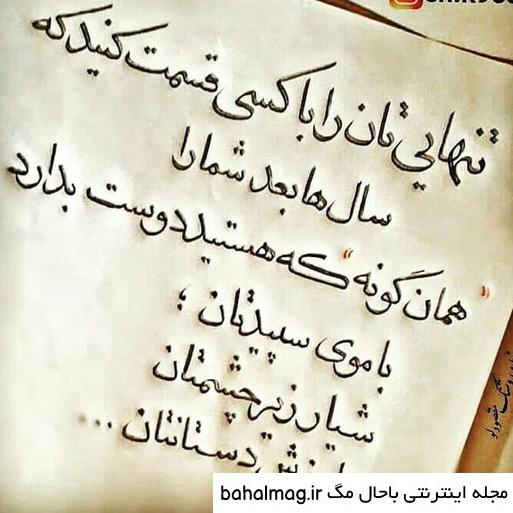 تنهایی تان را با کسی قسمت کنید که
سال ها بعد شما را
"همان گونه" که هستید دوست بدارد
با موی سپیدتان ؛
شیار زیر چشمتان
دستانتان ...
مجله اینترنتی باحال مگ bahalmag.ir